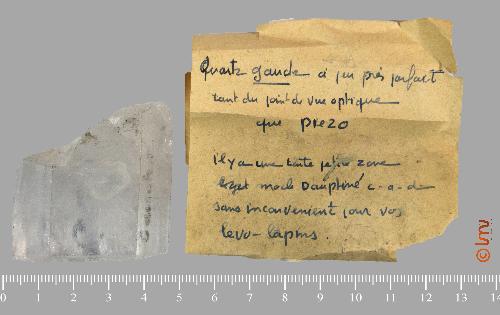 Quartz gauche à peu près parfait
tant du point de vue optique
que piezo
il y a une toute petite zone
macle Dauphiné c-a-d
sans inconvenient pour vos
levo-lapins.
0 1 2 3 4 5 6 7 8 9 10 11 12 13 14
© lmv